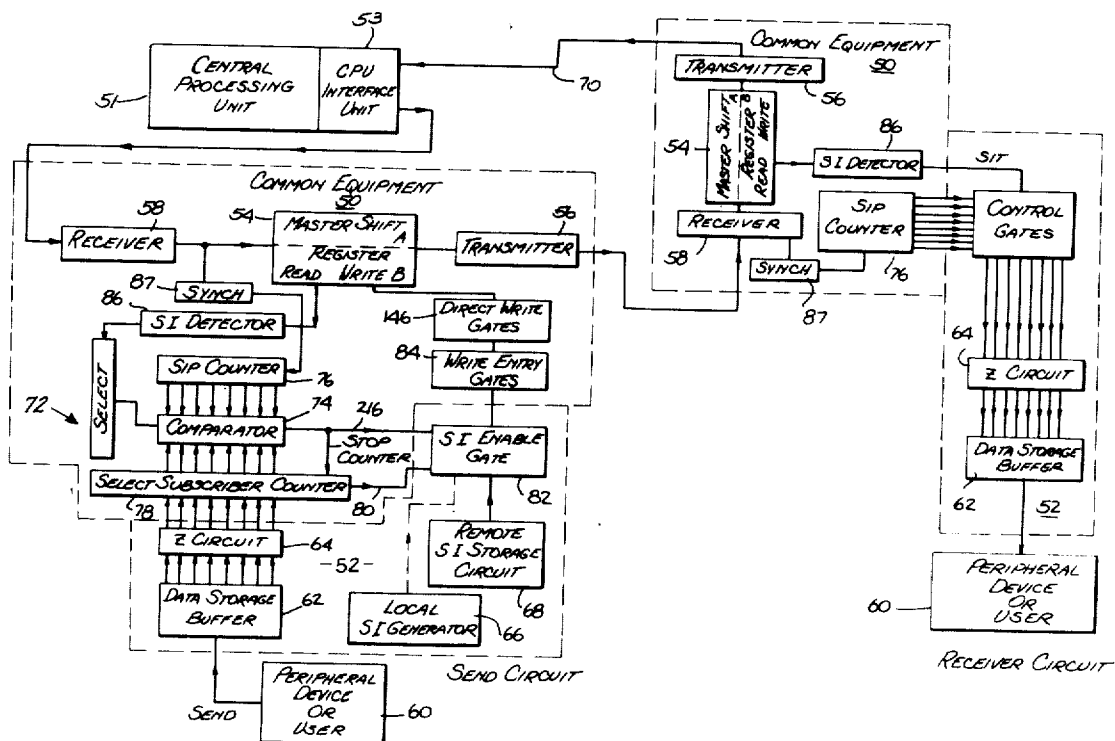 53
CENTRAL
PROCESSING
UNIT
CPU
INTERFACE
UNIT
51
70
COMMON EQUIPMENT
50
TRANSMITTER
56
54
MASTER SHIFT A
REGISTER B
READ WRITE
86
SI DETECTOR
SIT
RECEIVER
58
SIP
COUNTER
76
SYNCH
87
CONTROL
GATES
64
Z CIRCUIT
DATA STORAGE
BUFFER
62
52
PERIPHERAL
DEVICE
OR
USER
60
RECEIVER CIRCUIT
COMMON EQUIPMENT
50
58
RECEIVER
54
MASTER SHIFT A
REGISTER
READ WRITE B
56
TRANSMITTER
87
SYNCH
86
SI DETECTOR
146
DIRECT WRITE
GATES
84
WRITE ENTRY
GATES
SIP COUNTER
76
72
SELECT
74
COMPARATOR
216
STOP
COUNTER
SI ENABLE
GATE
82
SELECT SUBSCRIBER COUNTER
78
80
Z CIRCUIT
64
-52-
REMOTE
SI STORAGE
CIRCUIT
68
DATA STORAGE
BUFFER
62
LOCAL
SI GENERATOR
66
SEND CIRCUIT
SEND
PERIPHERAL
DEVICE
OR
USER
60